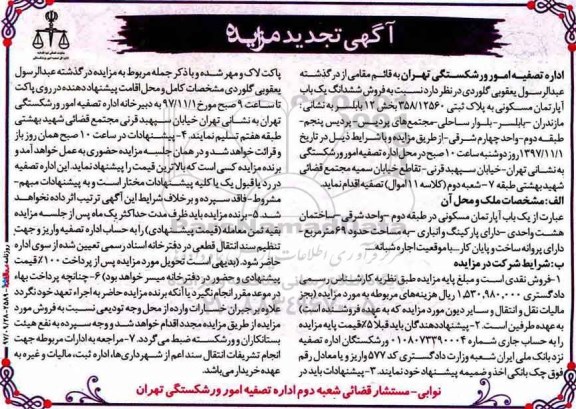 آگهی تجدید مزایده
اداره تصفیه امور ورشکستگی تهران به قائم مقامی از در گذشته
عبدالرسول یعقوبی گلوردی در نظر دارد نسبت به فروش ششدانگ یک باب
آپارتمان مسکونی به پلاک ثبتی ۳۵۸/۱۲۵۶۰ بخش ۱۲ بابلسر به نشانی:
مازندران - بابلسر - بلوار ساحلی - مجتمع های پردیس - پردیس پنجم -
طبقه دوم - واحد چهارم شرقی - از طریق مزایده و با شرایط ذیل در تاریخ
۱۳۹۷/۱۱/۱ روز دوشنبه ساعت ۱۰ صبح در محل اداره تصفیه امور ورشکستگی
به نشانی تهران - خیابان سپهبد قرنی - تقاطع خیابان سمیه مجتمع قضائی
شهید بهشتی طبقه ۷ - شعبه دوم (کلاسه ۱۱ اموال) تصفیه اقدام نماید.
الف: مشخصات ملک و محل آن
عبارت از یک باب آپارتمان مسکونی در طبقه دوم - واحد شرقی - ساختمان
هشت واحدی - دارای پارکینگ و انباری - به مساحت حدود ۶۹ مترمربع
دارای پروانه ساخت و پایان کار - با موقعیت اجاره شبانه.
ب: شرایط شرکت در مزایده
۱- فروش نقدی است و مبلغ پایه مزایده طبق نظریه کارشناس رسمی
دادگستری ۱٬۵۳۰٬۹۸۰٬۰۰۰ ریال هزینه های مربوطه به مورد مزایده (بجز
مالیات نقل و انتقال و سایر دیون مورد مزایده که به عهده فروشنده است)
به عهده طرفین است. ۲- پیشنهاددهندگان باید قبلا ۷۵٪ قیمت پایه مزایده
را به حساب جاری شماره ۰۱۰۸۰۷۳۳۹۰۰۰۴ ورشکستگان اداره تصفیه
نزد بانک ملی ایران شعبه وزارت دادگستری کد ۵۷۷ واریز و یا معادل رقم
فوق چک بانکی اخذ و ضمیمه پیشنهاد خود نمایند. ۳- پیشنهادات باید در
پاکت لاک و مهر شده و با ذکر جمله مربوط به مزایده در گذشته عبدالرسول
یعقوبی گلوردی مشخصات کامل و محل اقامت پیشنهاد دهنده در روی پاکت
تا ساعت ۹ صبح مورخ ۹۷/۱۱/۱ به دبیرخانه اداره تصفیه امور ورشکستگی
تهران به نشانی تهران خیابان سپهبد قرنی مجتمع قضائی شهید بهشتی
طبقه هفتم تسلیم نمایند. ۴- پیشنهادات در ساعت ۱۰ صبح همان روز باز
و قرائت خواهد شد و در همان جلسه مزایده حضوری به عمل خواهد آمد و
برنده مزایده کسی است که بالاترین قیمت را پیشنهاد نماید. این اداره تصفیه
در رد یا قبول یک یا کلیه پیشنهادات مختار است و به پیشنهادات مبهم -
مشروط - فاقد سپرده و بر خلاف شرایط این آگهی ترتیب اثر داده نخواهد
شد. ۵- برنده مزایده باید ظرف مدت حداکثر یک ماه پس از جلسه مزایده
بقیه ثمن معامله (قیمت پیشنهادی) را به حساب اداره تصفیه واریز و جهت
تنظیم سند انتقال قطعی در دفترخانه اسناد رسمی تعیین شده از سوی اداره
حاضر شود. (بدیهی است تحویل مورد مزایده پس از پرداخت ۱۰۰٪ قیمت
پیشنهادی و حضور در دفترخانه میسر خواهد بود) ۶- چنانچه پرداخت بهاء
در موعد مقرر انجام نگیرد یا آنکه برنده مزایده حاضر به اجراء تعهد خود نگردد
علاوه بر جبران خسارات وارده از محل وجه تودیعی نسبت به فروش مورد
مزایده از طریق مزایده مجدد اقدام خواهد شد و وجه سپرده به نفع هیئت
بستانکاران و ورشکسته ضبط می گردد. ۷- مراجعه به ادارات مربوطه جهت
انجام تشریفات انتقال سند اعم از شهرداری ها، اداره ثبت، مالیات و غیره به
عهده خریدار می باشد.
نوابی - مستشار قضائی شعبه دوم اداره تصفیه امور ورشکستگی تهران